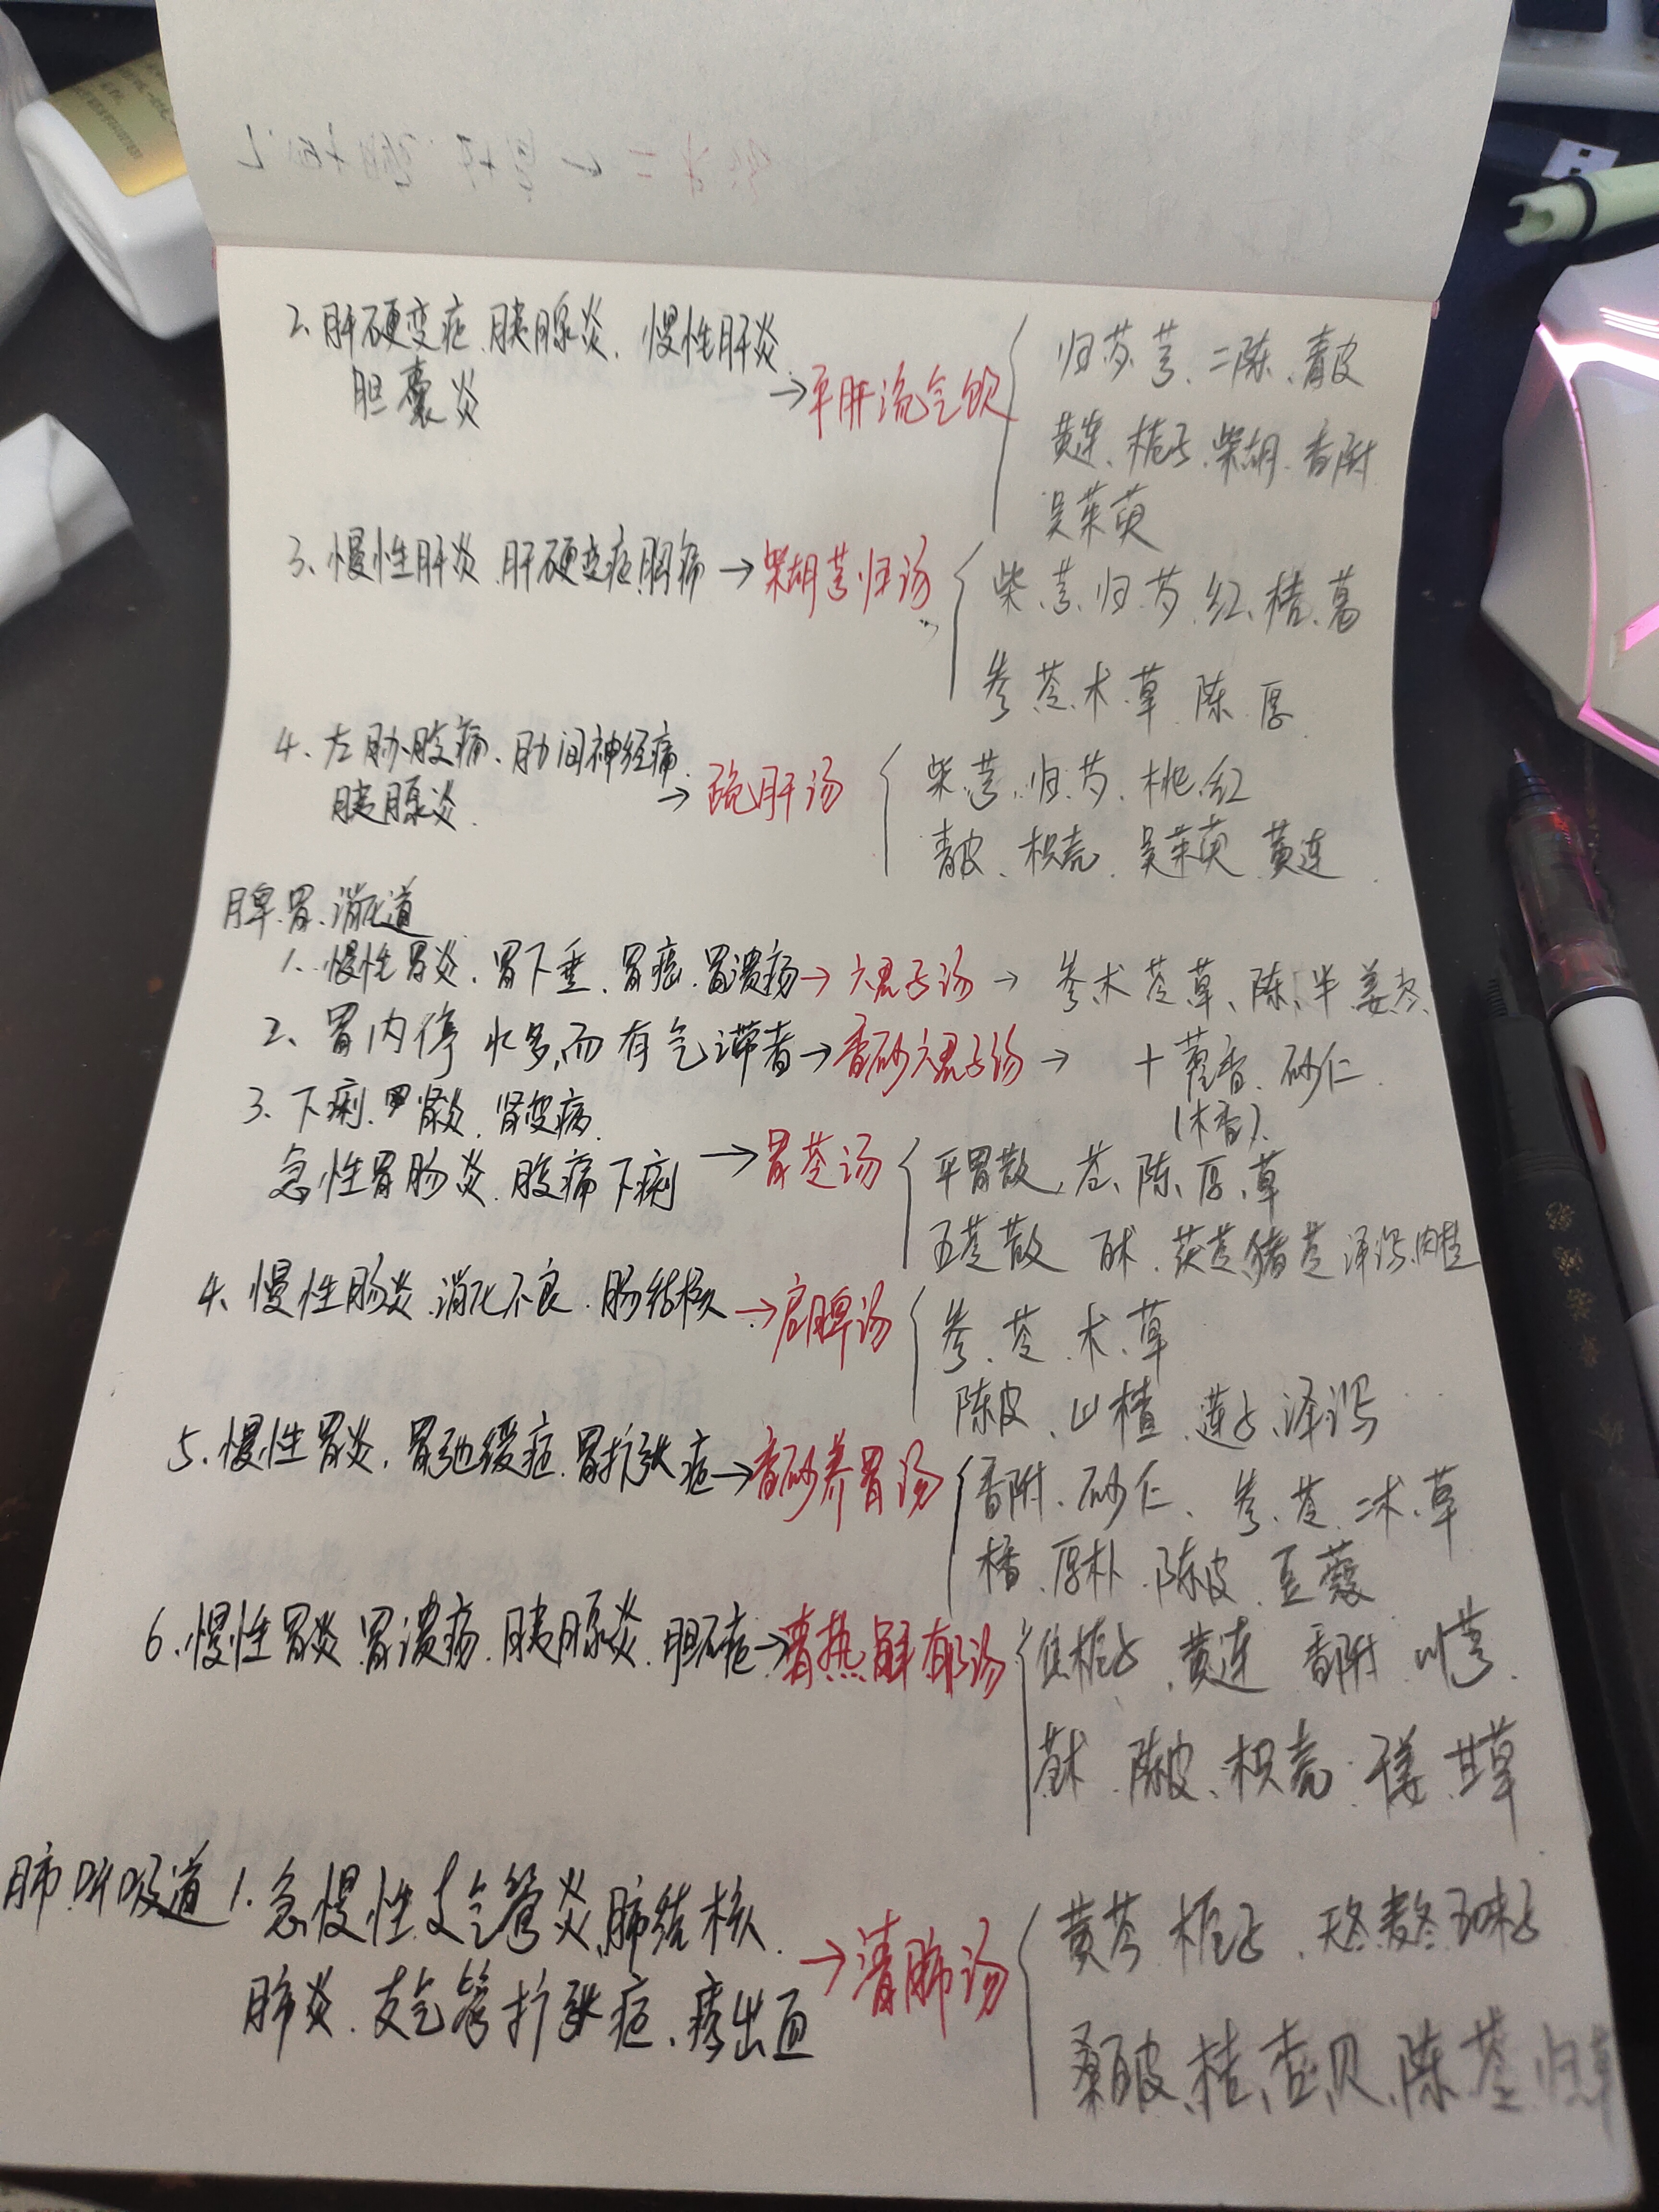 2、肝硬变症、胰腺炎、慢性肝炎
胆囊炎
→平肝流气饮
归芍芎、二陈、青皮
黄连、栀子、柴胡、香附
吴茱萸
3、慢性肝炎、肝硬变症胸痛→柴胡芎归汤
柴、芎、归、芍、红、桔、葛
参 苓、术、草 陈、厚
4、左胁腹痛、肋间神经痛
胰腺炎
→疏肝汤
柴、芎、归、芍、桃、红
青皮、枳壳、吴茱萸 黄连
脾、胃、消化道
1、慢性胃炎、胃下垂、胃癌、胃溃疡→六君子汤→参术苓草、陈、半姜枣
2、胃内停水多,而有气滞者→香砂六君子汤→ 十藿香、砂仁
(木香)
3、下痢、肾炎、肾变病
急性胃肠炎、腹痛下痢
→胃苓汤
平胃散、苍、陈、厚、草
五苓散 白术、茯苓猪苓 泽泻肉桂
4、慢性肠炎、消化不良、肠结核→启脾汤
参、苓、术、草
陈皮、山楂、莲子、泽泻
5、慢性胃炎,胃弛缓症、胃扩张症→香砂养胃汤
香附、砂仁、参、苓、二术、草
厚朴、陈皮、豆蔻
6、慢性胃炎 胃溃疡、胰腺炎、胆石症→清热解郁汤
焦栀子、黄连 香附 川芎
苍术、陈皮、枳壳、干姜、甘草
肺呼吸道 1、急慢性支气管炎、肺结核
肺炎、支气管扩张症、痰出血
→清肺汤
黄芩 栀子、天冬麦冬五味子
桑白皮、桔、杏、贝、陈、苓、归草